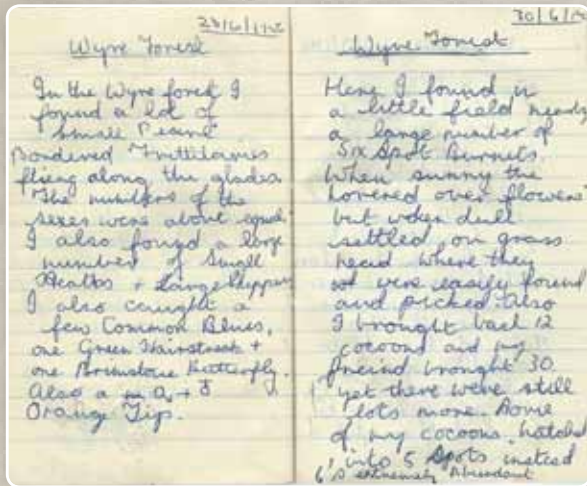 Wyre Forest
In the Wyre forest I
found a lot of
small Pearl
Bordered Frittilaries
flieng along the glades
The numbers of the
sexes were about equal
I also found a large
number of Small
Heaths + Large Skippers
I also caught a
few Common Blues,
one Green Hairstreak +
one Brimstone Butterfly.
Also a
Orange Tip.
30/6/
Wyre Forrest
Here I found in
a little field nearby
a large number of
Six Spot Burnets.
When sunny the
hovered over flowers
but when dull
settled on grass
head where they
were easily found
and picked. Also
I brought back 12
cocoons and my
freind brought 30
yet there were still
lots more. Some
of my cocoons hatched
into 5 Spots instead
6's extremely Abundant